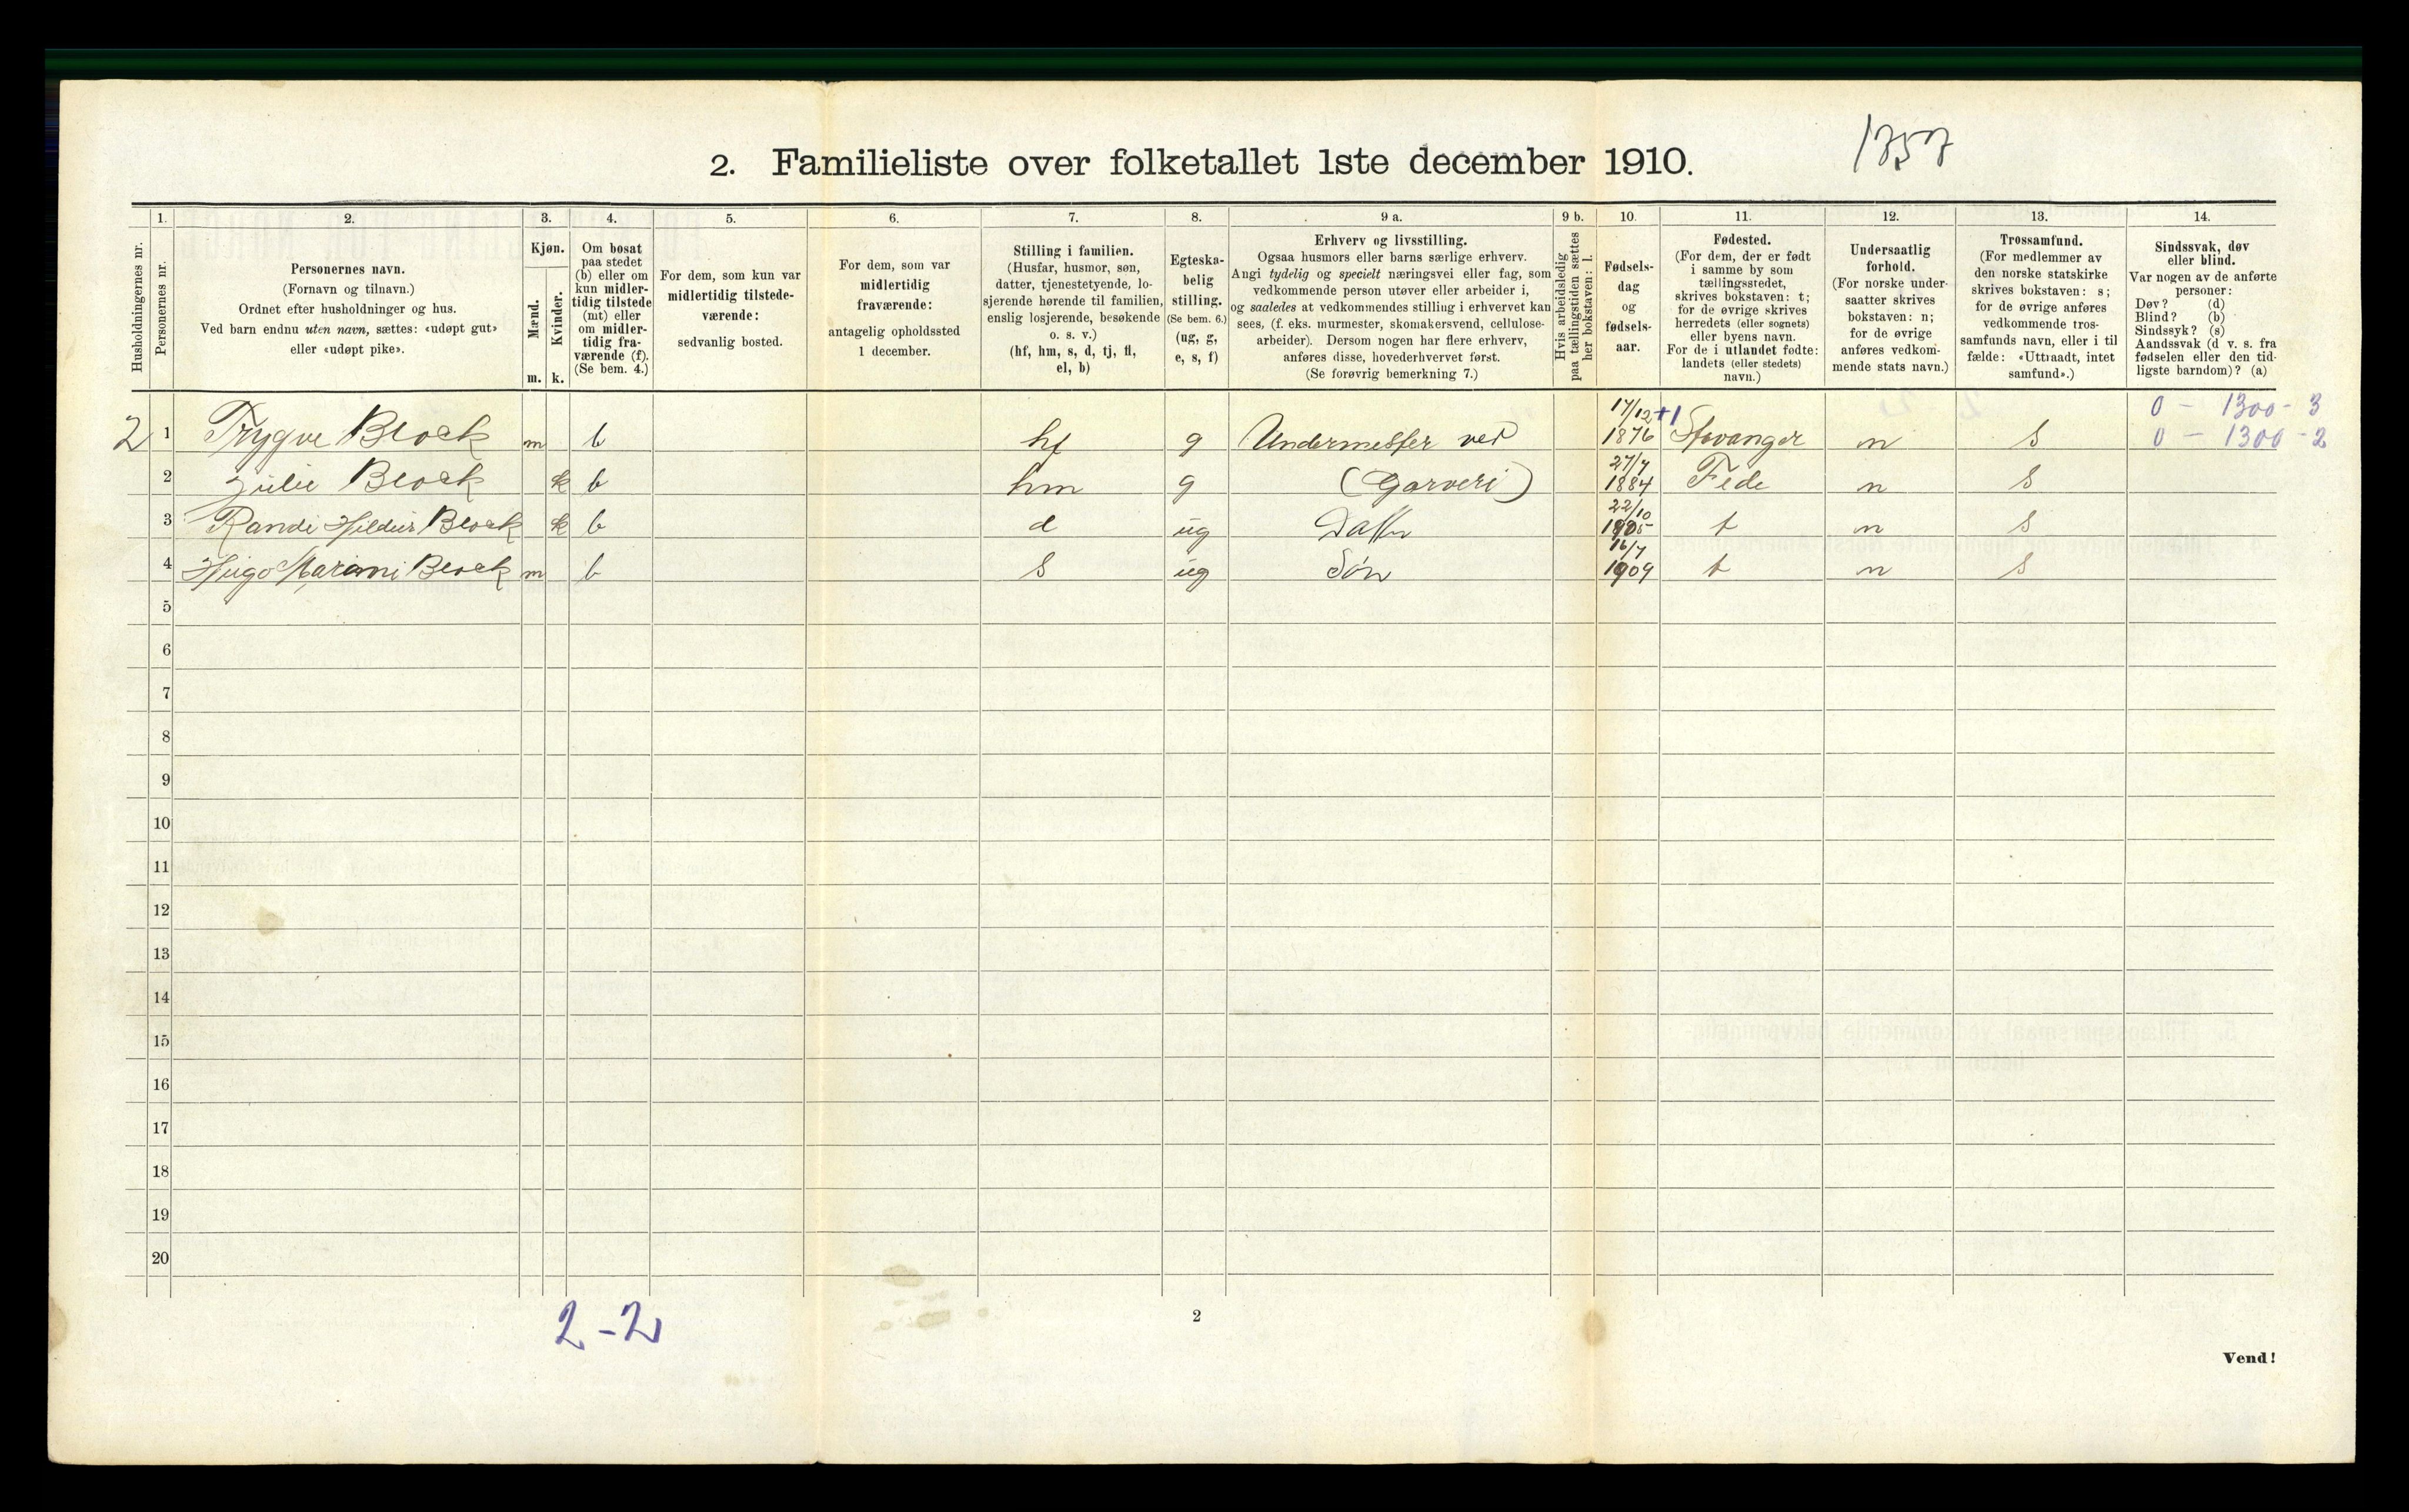 1757
2. Familieliste over folketallet 1ste december 1910.
1. 2. 3. 4. 5. 6. 7. 8. 9 a. 9 b. 10. 11. 12. 13. 14.
Husholdningernes nr.
Personernes nr.
Personernes navn.
(Fornavn og tilnavn.)
Ordnet efter husholdninger og hus.
Ved barn endnu uten navn, sættes: «udøpt gut»
eller «udøpt pike».
Kjøn.
Mænd.
Kvinder.
m. k.
Om bosat
paa stedet
(b) eller om
kun midler-
tidig tilstede
(mt) eller
om midler-
tidig fra-
værende (f).
(Se bem. 4.)
For dem, som kun var
midlertidig tilstede-
værende:
sedvanlig bosted.
For dem, som var
midlertidig
fraværende:
antagelig opholdssted
1 december.
Stilling i familien.
(Husfar, husmor, søn,
datter, tjenestetyende, lo-
sjerende hørende til familien,
enslig losjerende, besøkende
o. s. v.)
(hf, hm, s, d, tj, fl,
el, b)
Egteska-
belig
stilling.
(Se bem. 6.)
(ug, g,
e, s, f)
Erhverv og livsstilling.
Ogsaa husmors eller barns særlige erhverv.
Angi tydelig og specielt næringsvei eller fag, som
vedkommende person utøver eller arbeider i,
og saaledes at vedkommendes stilling i erhvervet kan
sees, (f. eks. murmester, skomakersvend, cellulose-
arbeider). Dersom nogen har flere erhverv,
anføres disse, hovederhvervet først.
(Se forøvrig bemerkning 7.)
Hvis arbeidsledig
paa tællingstiden sættes
her bokstaven: l.
Fødsels-
dag
og
fødsels-
aar.
Fødested.
(For dem, der er født
i samme by som
tællingsstedet,
skrives bokstaven: t;
for de øvrige skrives
herredets (eller sognets)
eller byens navn.
For de i utlandet fødte:
landets (eller stedets)
navn.)
Undersaatlig
forhold.
(For norske under-
saatter skrives
bokstaven: n;
for de øvrige
anføres vedkom-
mende stats navn.)
Trossamfund.
(For medlemmer av
den norske statskirke
skrives bokstaven: s;
for de øvrige anføres
vedkommende tros-
samfunds navn, eller i til
fælde: «Uttraadt, intet
samfund».)
Sindssvak, døv
eller blind.
Var nogen av de anførte
personer:
Døv? (d)
Blind? (b)
Sindssyk? (s)
Aandssvak (d v. s. fra
fødselen eller den tid-
ligste barndom)? (a)
0 - 1300 - 3
2 1 Trygve Block m b hf g Undermester ved 17/12 1876 +1 Stavanger n s 0 - 1300 - 2
2 Julie Block k b hm g (Garveri) 27/7 1884 Fede n s
3 Randi Hildur Block k b d ug Datter 22/10 1905 t n s
4 Hugo Marini Block m b s ug Søn 16/7 1909 t n s
5
6
7
8
9
10
11
12
13
14
15
16
17
18
19
20
2-2
2
Vend!